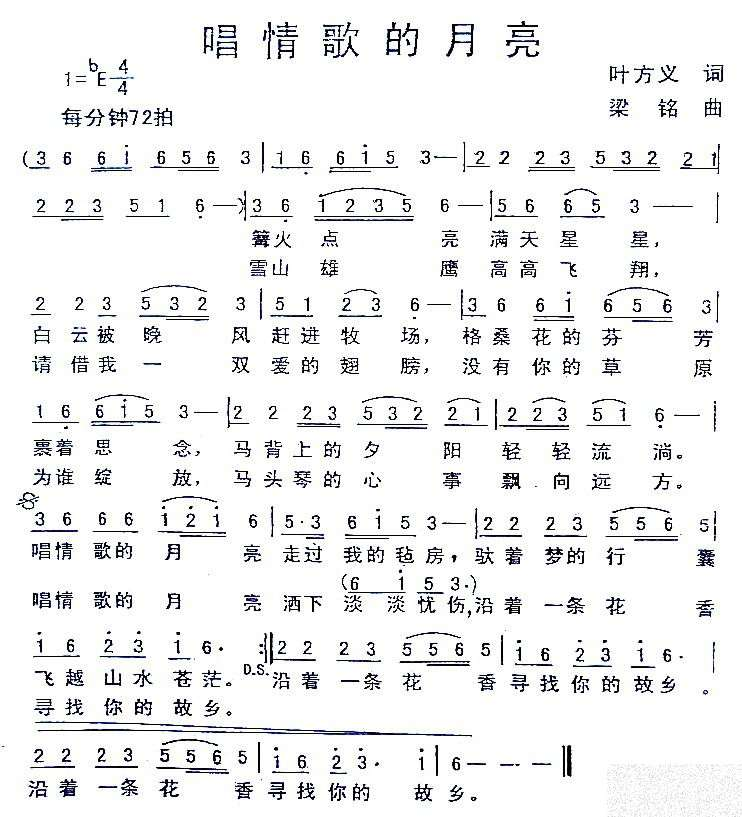 唱情歌的月亮
1=♭E 4/4
叶方义 词
每分钟72拍
梁铭 曲
(3 6 6 i 5 6 3 | 1 6 6 i 5 3 — | 2 2 2 3 5 3 2 2 1 |
2 2 3 5 1 6 —) 3 6 1 2 3 5 6 — | 5 6 6 5 3 — |
篝火点 亮 满天星 星,
雪山雄 鹰 高高飞 翔,
2 2 3 5 3 2 3 | 5 1 2 3 6 — | 6 6 6 i 6 5 6 3 |
白云被晚 风 赶进牧 场, 格桑花的芬 芳
请借我一 双 爱的翅 膀, 没有你的草 原
1 6 6 i 5 3 — | 2 2 2 3 5 3 2 2 1 | 5 2 3 5 1 6 — |
裹着思 念, 马背上的夕 阳 轻轻流 淌。
为谁绽 放, 马头琴的心 事 飘向远 方。
3 6 6 6 i 2 i 6 | 5· 3 6 i 5 3 — | 2 2 2 3 5 5 6 5 |
唱情歌的月 亮 走过我的毡房, 驮着梦的行 囊
(6 i 5 3·)
唱情歌的月 亮 洒下淡淡忧伤,沿着一条花 香
i 6 2 3 i 6· :‖ 2 2 2 3 5 5 6 5 | i 6 2 3 i 6· |
飞越山水苍茫。 D.S. 沿着一条花 香 寻找你的故乡。
寻找你的故乡。
2 2 2 3 5 5 6 5 | i 6 2 3· i | 6 — — ‖
沿着一条花 香寻找你的 故乡。